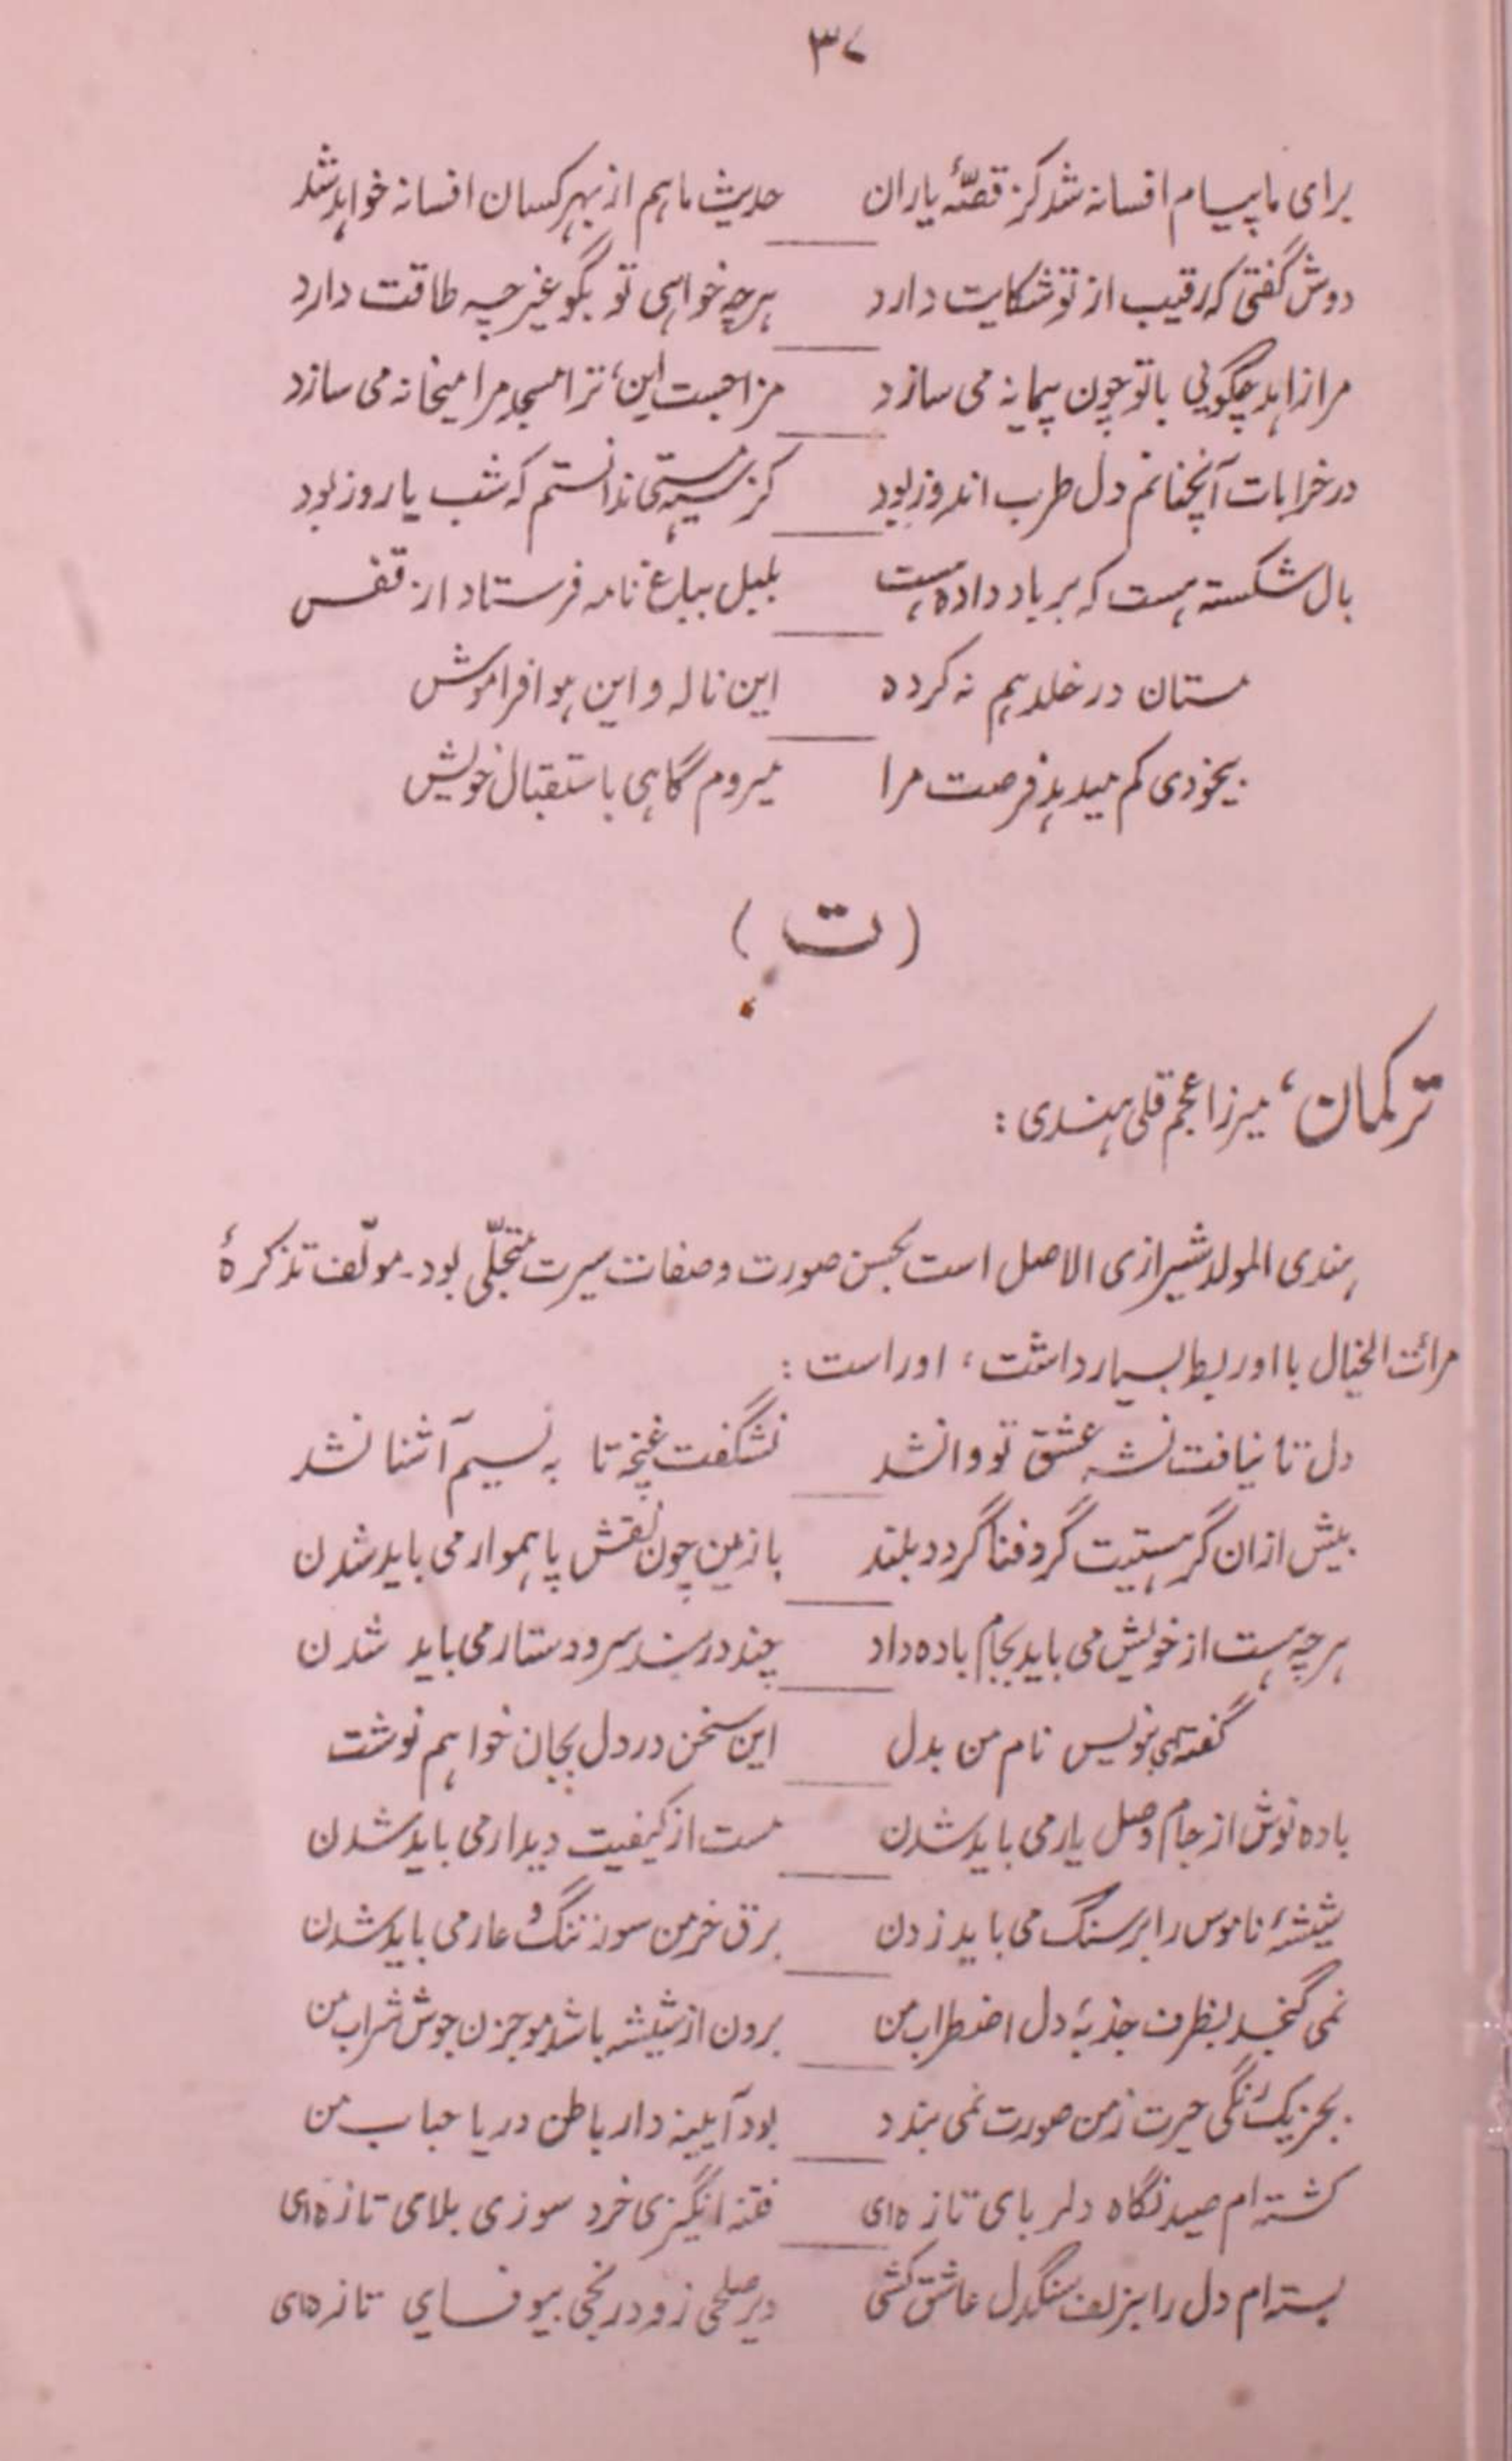 ۳۷
برای ما پیام افسانه شد کز قصّهٔ یاران حدیث ما هم از بهر کسان افسانه خواهد شد
دوش گفتی که رقیب از تو شکایت دارد هرچه خواهی تو بگو غیر چه طاقت دارد
مرا زاهد چگویی با تو چون پیمانه می سازد مزاجست این، ترا مسجد مرا میخانه می سازد
در خرابات آنچنانم دل طرب اندوز بود کز سیه مستی ندانستم که شب یا روز بود
بال شکسته هست که بر باد داده است بلبل بباغ نامه فرستاد از قفس
مستان در خلد هم نه کرده این ناله و این هو افراموش
بیخودی کم میدهد فرصت مرا میروم گاهی باستقبال خویش
(ت)
ترکمان، میرزا عجم قلی هندی:
هندی المولد شیرازی الاصل است بحسن صورت و صفات سیرت متجلّی بود- مولّف تذکرهٔ
مرائت الخیال با او ربط بسیار داشت، اوراست:
دل تا نیافت نشه عشق تو وا نشد نشگفت غنچه تا به نسیم آشنا نشد
بیش ازان گر هستیت گرد فنا گردد بلند با زمین چون نقش پا هموار می باید شدن
هرچه هست از خویش می باید بجام باده داد چند در بند سر و دستار می باید شدن
گفتهی بنویس نام من بدل این سخن در دل بجان خواهم نوشت
باده نوش از جام وصل یار می باید شدن مست از کیفیت دیدار می باید شدن
شیشهٔ ناموس را بر سنگ می باید زدن برق خرمن سوز ننگ و عار می باید شدن
نمی گنجد بظرف جذبهٔ دل اضطراب من برون از شیشه باشد موجزن جوش شراب من
بجز یک رنگی حیرت ز من صورت نمی بندد بود آیینه دار باطن دریا حباب من
کشته ام صید نگاه دلربای تازه ای فتنه انگیزی خرد سوزی بلای تازه ای
بسته ام دل را بزلف سنگدل عاشق کشی دیر صلحی زود رنجی بیوفایی تازه ای